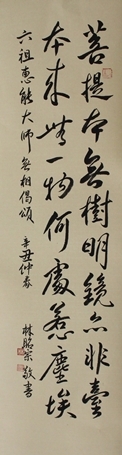 菩提本無樹明鏡亦非臺
本来無一物何處惹塵埃
六祖惠能大師無相偈頌
辛丑仲春
林昭宗敬書